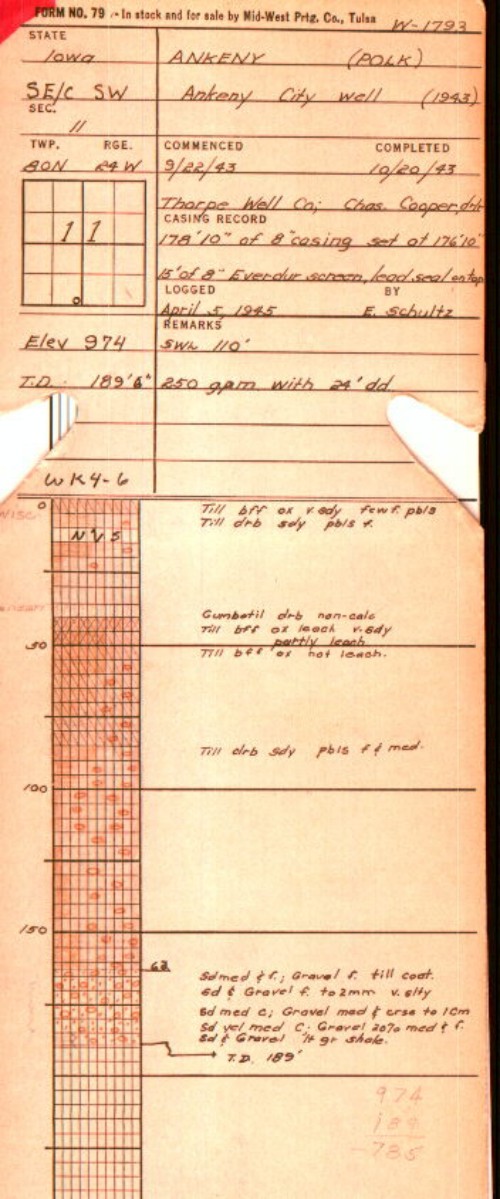 FORM NO. 79 - In stock and for sale by Mid-West Prtg. Co., Tulsa W-1793
STATE
Iowa ANKENY (POLK)
SE/c SW Ankeny City well (1943)
SEC.
11
TWP. RGE. COMMENCED COMPLETED
80N 24W 9/22/43 10/20/43
Thorpe Well Co; Chas. Cooper, drlr
CASING RECORD
11
178'10" of 8" casing set at 176'10"
15' of 8" Everdur screen, lead seal on top
LOGGED BY
April 5, 1945 E. Schultz
REMARKS
Elev 974 SWL 110'
T.D. 189'6" 250 gpm with 24' dd.
WK4-6
0 Till bff ox v. sdy few f. pbls
Wisc Till drb sdy pbls f.
NVS
Gumbotil drb non-calc
Till bff ox leach v. sdy
partly leach
50 Till bff ox not leach.
Till drb sdy pbls f & med.
100
150
Sd med & f.; Gravel f. till coat.
Sd & Gravel f. to 2mm v. slty
Sd med c; Gravel med & crse to 1cm
Sd yel med C; Gravel 20% med & f.
Sd & Gravel lt gr shale.
T.D. 189'
974
189
785